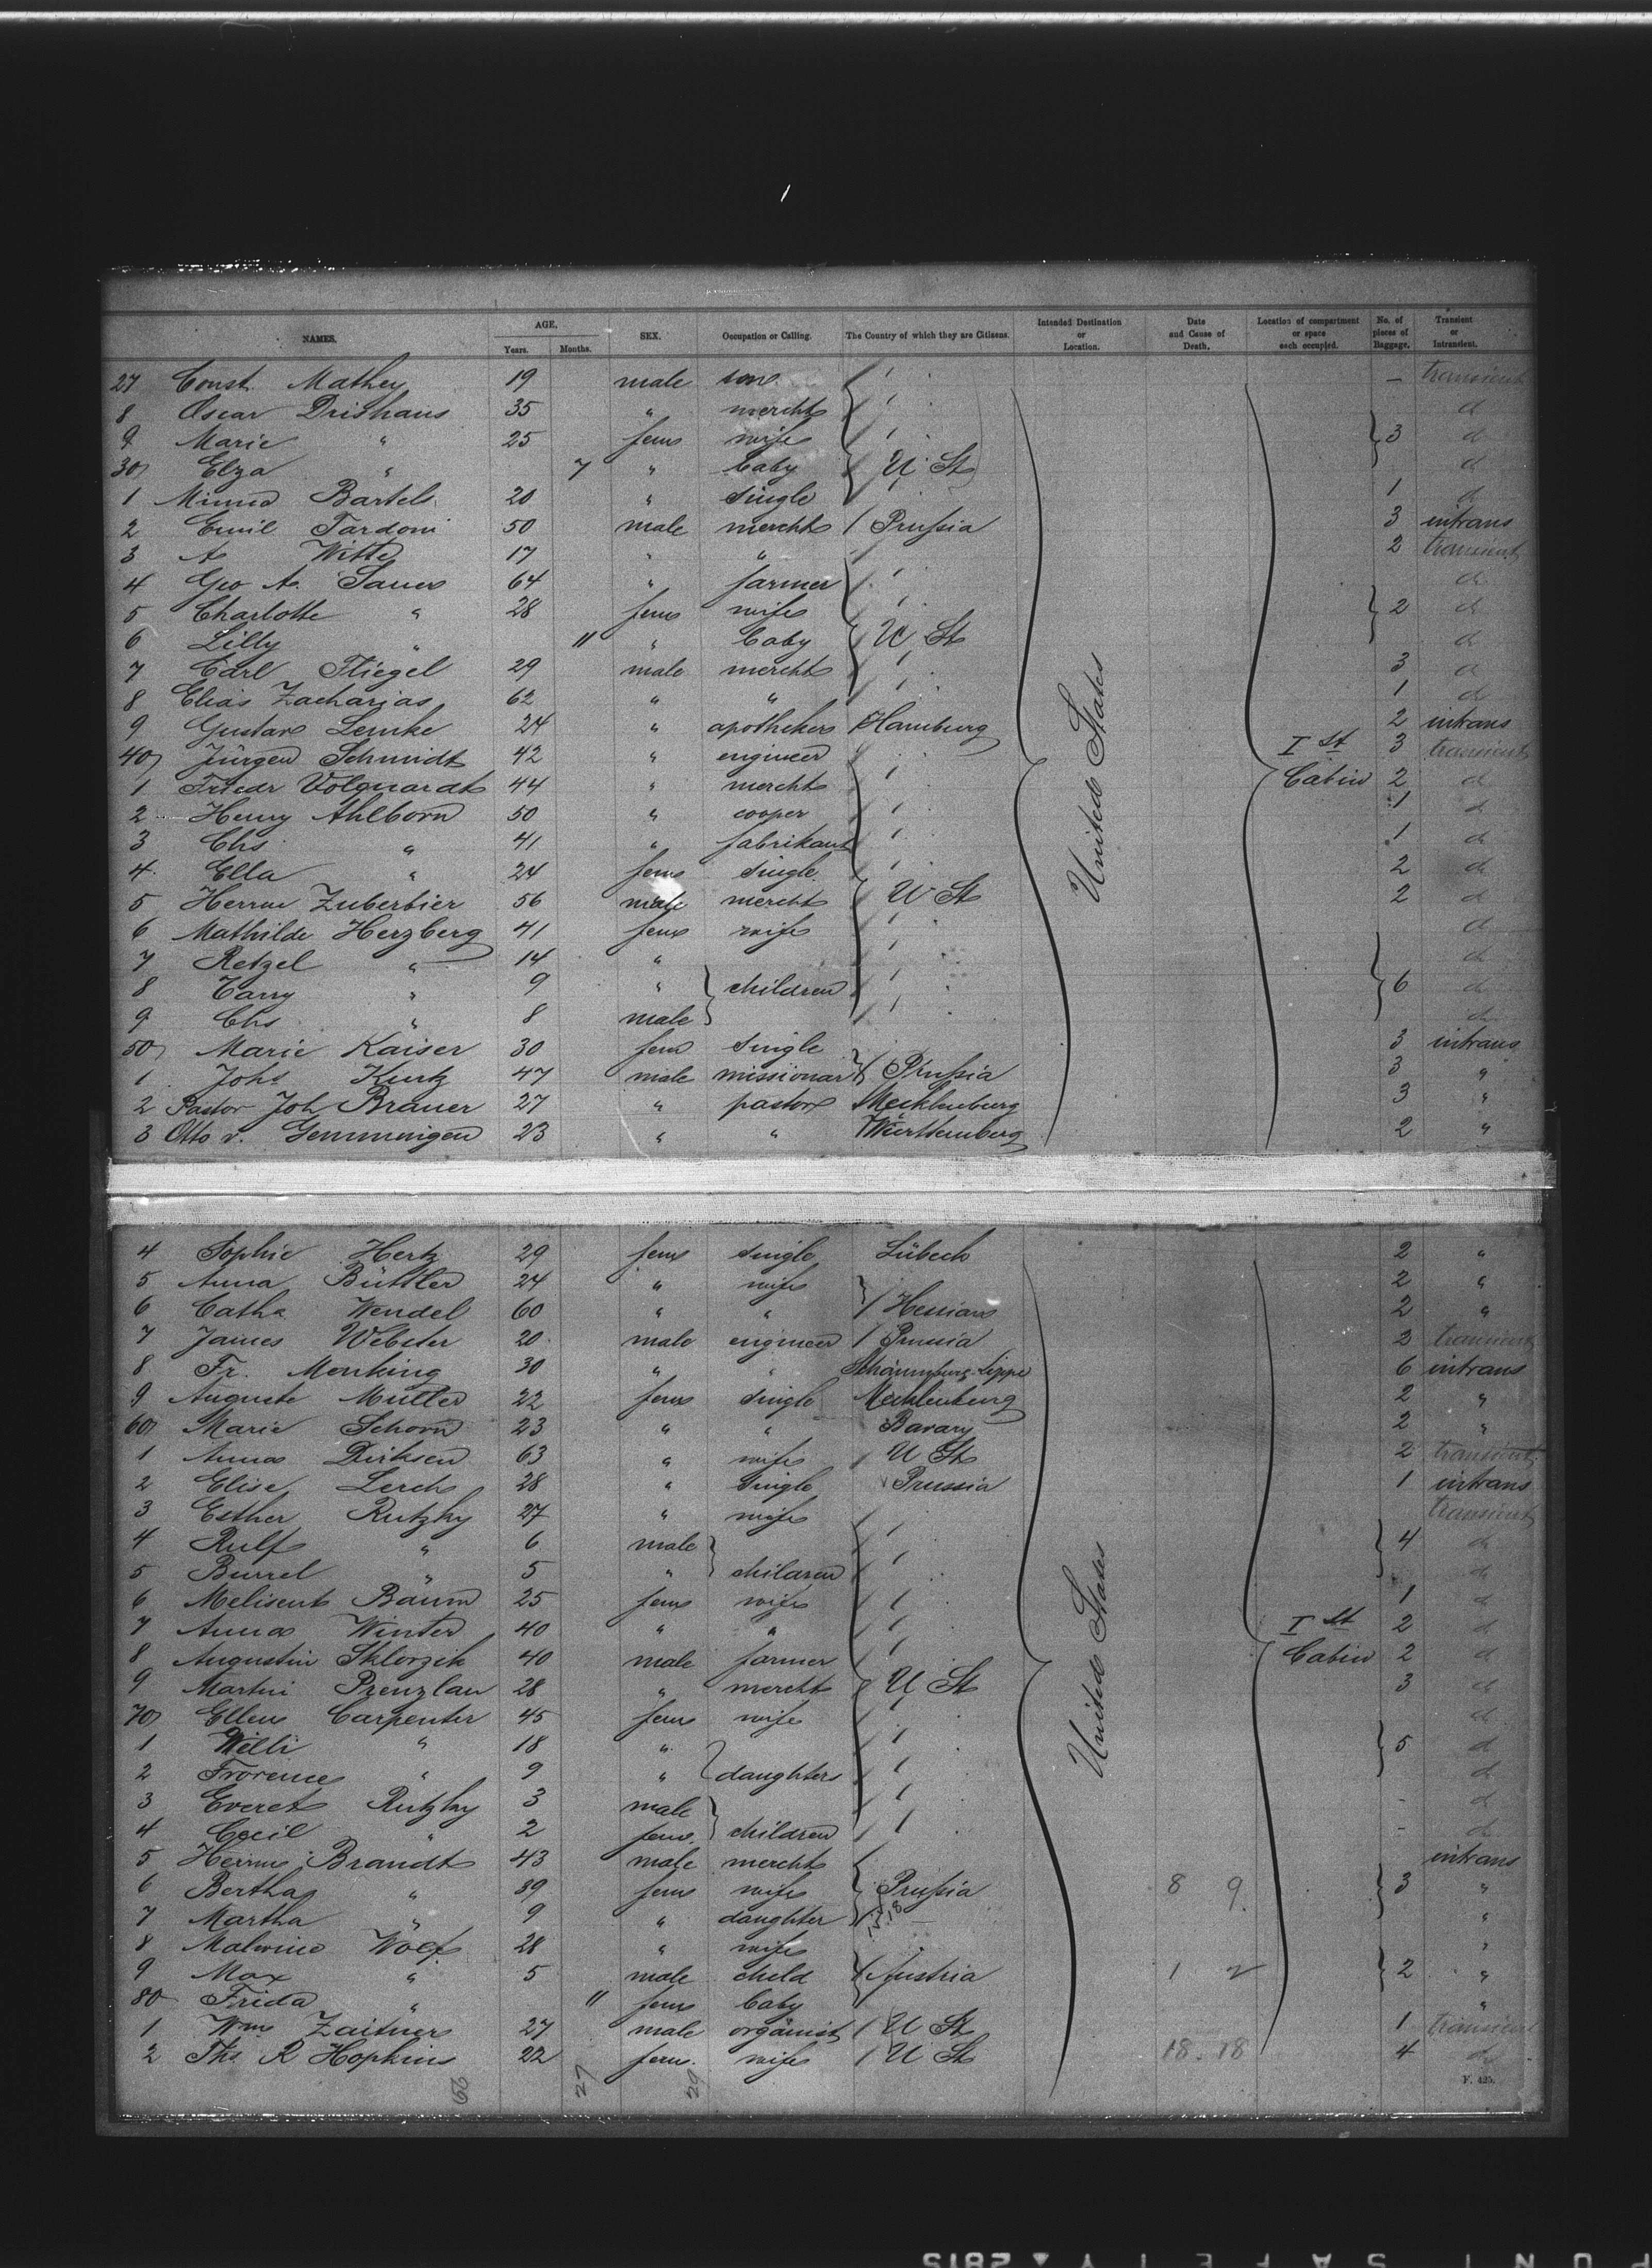 NAMES. AGE. Years. Months. SEX. Occupation or Calling. The Country of which they are Citizens. Intended Destination or Location. Date and Cause of Death. Location of compartment or space each occupied. No. of pieces of Baggage. Transient or Intransient.
27 Const. Mathey 19 male son — transient
8 Oscar Drishaus 35 " mercht d
9 Marie " 25 fem wife 3 d
30 Elza " 7 " baby U. St d
1 Minna Bartels 20 " single 1 d
2 Emil Tardoni 50 male mercht Prußia 3 intrans
3 A Witte 17 " " 2 transient
4 Geo A. Sauer 64 " farmer d
5 Charlotte " 28 fem wife 2 d
6 Lilly " 11 " baby U St d
7 Carl Stiegel 29 male mercht 3 d
8 Elias Zacharias 62 " " 1 d
9 Gustav Lemke 24 " apotheker Hamburg 2 intrans
40 Jürgen Schmidt 42 " engineer 3 transient
United States
I St Cabin
1 Friedr Volquardt 44 " mercht 2 d
2 Henry Ahlborn 50 " cooper 1 d
3 Chs " 41 " fabrikant 1 d
4 Ella " 24 fem single 2 d
5 Herm Zuberbier 56 male mercht U St 2 d
6 Mathilde Herzberg 41 fem wife d
7 Retzel " 14 " d
8 Carry " 9 " children 6 d
9 Chs " 8 male d
50 Marie Kaiser 30 fem single 3 intrans
1 Johs Kurtz 47 male missionar Prußia 3 "
2 Pastor Joh Brauer 27 " pastor Mecklenburg 3 "
3 Otto v. Gemmingen 23 " " Württemberg 2 "
4 Sophie Hertz 29 fem single Lübeck 2 "
5 Anna Büttler 24 " wife 2 "
6 Catha Wendel 60 " " Hessians 2 "
7 James Webster 20 male engineer Prussia 2 transient
8 Fr. Monking 30 " " Schaumburg-Lippe 6 intrans
9 Auguste Müller 22 fem single Mecklenburg 2 "
60 Marie Schorn 23 " " Bavary 2 "
1 Anna Dirksen 63 " wife U St 2 transient
2 Elise Lerch 28 " single Prussia 1 intrans
3 Esther Rutzky 27 " wife transient
4 Rulf " 6 male 4 d
5 Burrel " 5 " children d
6 Melisent Baum 25 fem wife 1 d
7 Anna Winter 40 " " 2 d
United States
I St Cabin
8 Augustin Sklorzik 40 male farmer 2 d
9 Martin Prenzlau 28 " mercht U St 3 d
70 Ellen Carpenter 45 fem wife d
1 Willi " 18 " 5 d
2 Frorence " 9 " daughters d
3 Everet Rutzky 3 male - d
4 Cecil " 2 fem. children - d
5 Herm Brandt 43 male mercht intrans
6 Bertha " 39 fem wife Prußia 8 9. 3 "
7 Martha " 9 " daughter "
8 Malwine Wolf 28 " wife "
9 Max " 5 male child Austria 1 2 2 "
80 Frida " 11 fem baby "
1 Wm Zaitner 27 male organist U St 1 transient
2 Ths R Hopkins 22 fem. wife U St 18. 18 4 d
27 29
F. 425.